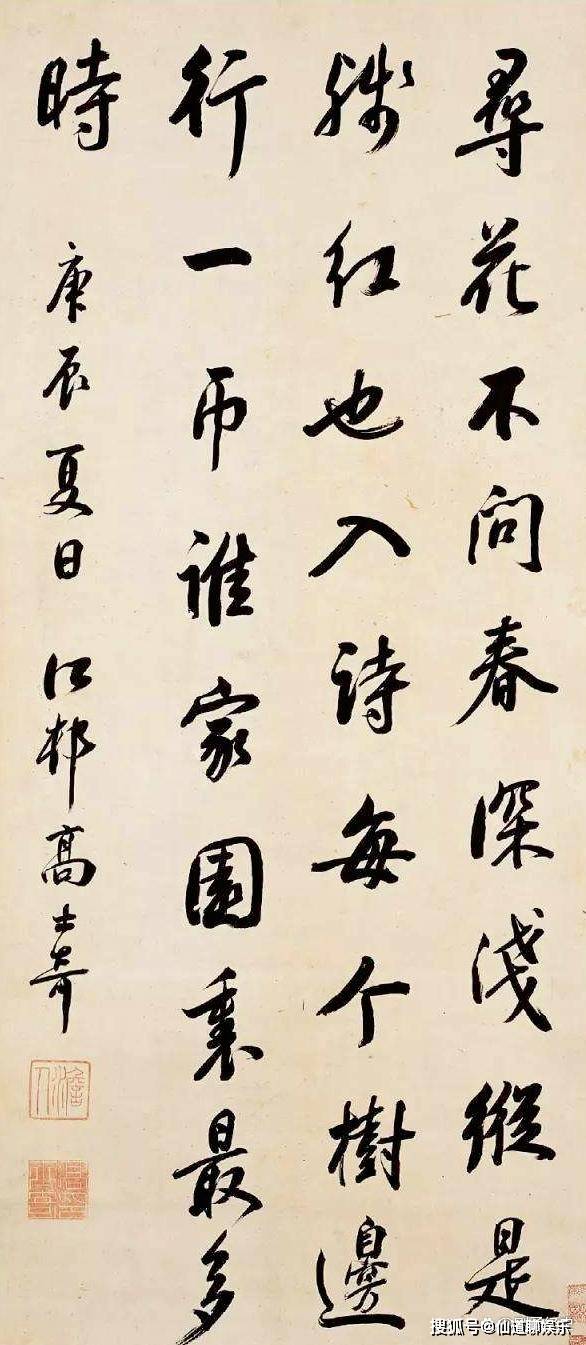 尋花不問春深淺縱是
殘紅也入詩每个樹邊
行一帀誰家園裏最多
時
庚辰夏日 江邨高士奇
澹人
搜狐号@仙道聊娱乐